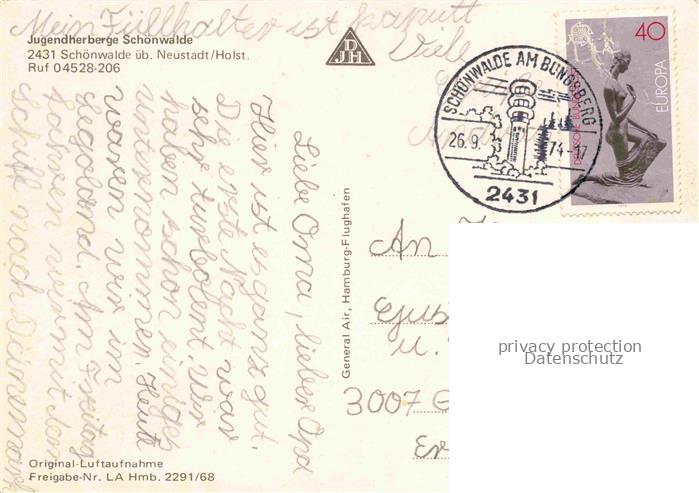 Mein Füllhalter ist kaputt
Viele
Jugendherberge Schönwalde
2431 Schönwalde üb. Neustadt/Holst.
Ruf 04528-206
DJH
SCHÖNWALDE AM BUNGSBERG
26.9. 74-17
2431
40
EUROPA
DEUTSCHE BUNDESPOST
Liebe Oma, lieber Opa
Hier ist es ganz gut.
Die erste Nacht war
sehr turbolent. Wir
haben schon einiges
unternommen. Heute
waren wir im
Legoland. Am Freitag
fahren wir mit dem
Schiff nach Dänemark
General Air, Hamburg-Flughafen
An
u.
3007
Original-Luftaufnahme
Freigabe-Nr. LA Hmb. 2291/68
privacy protection
Datenschutz